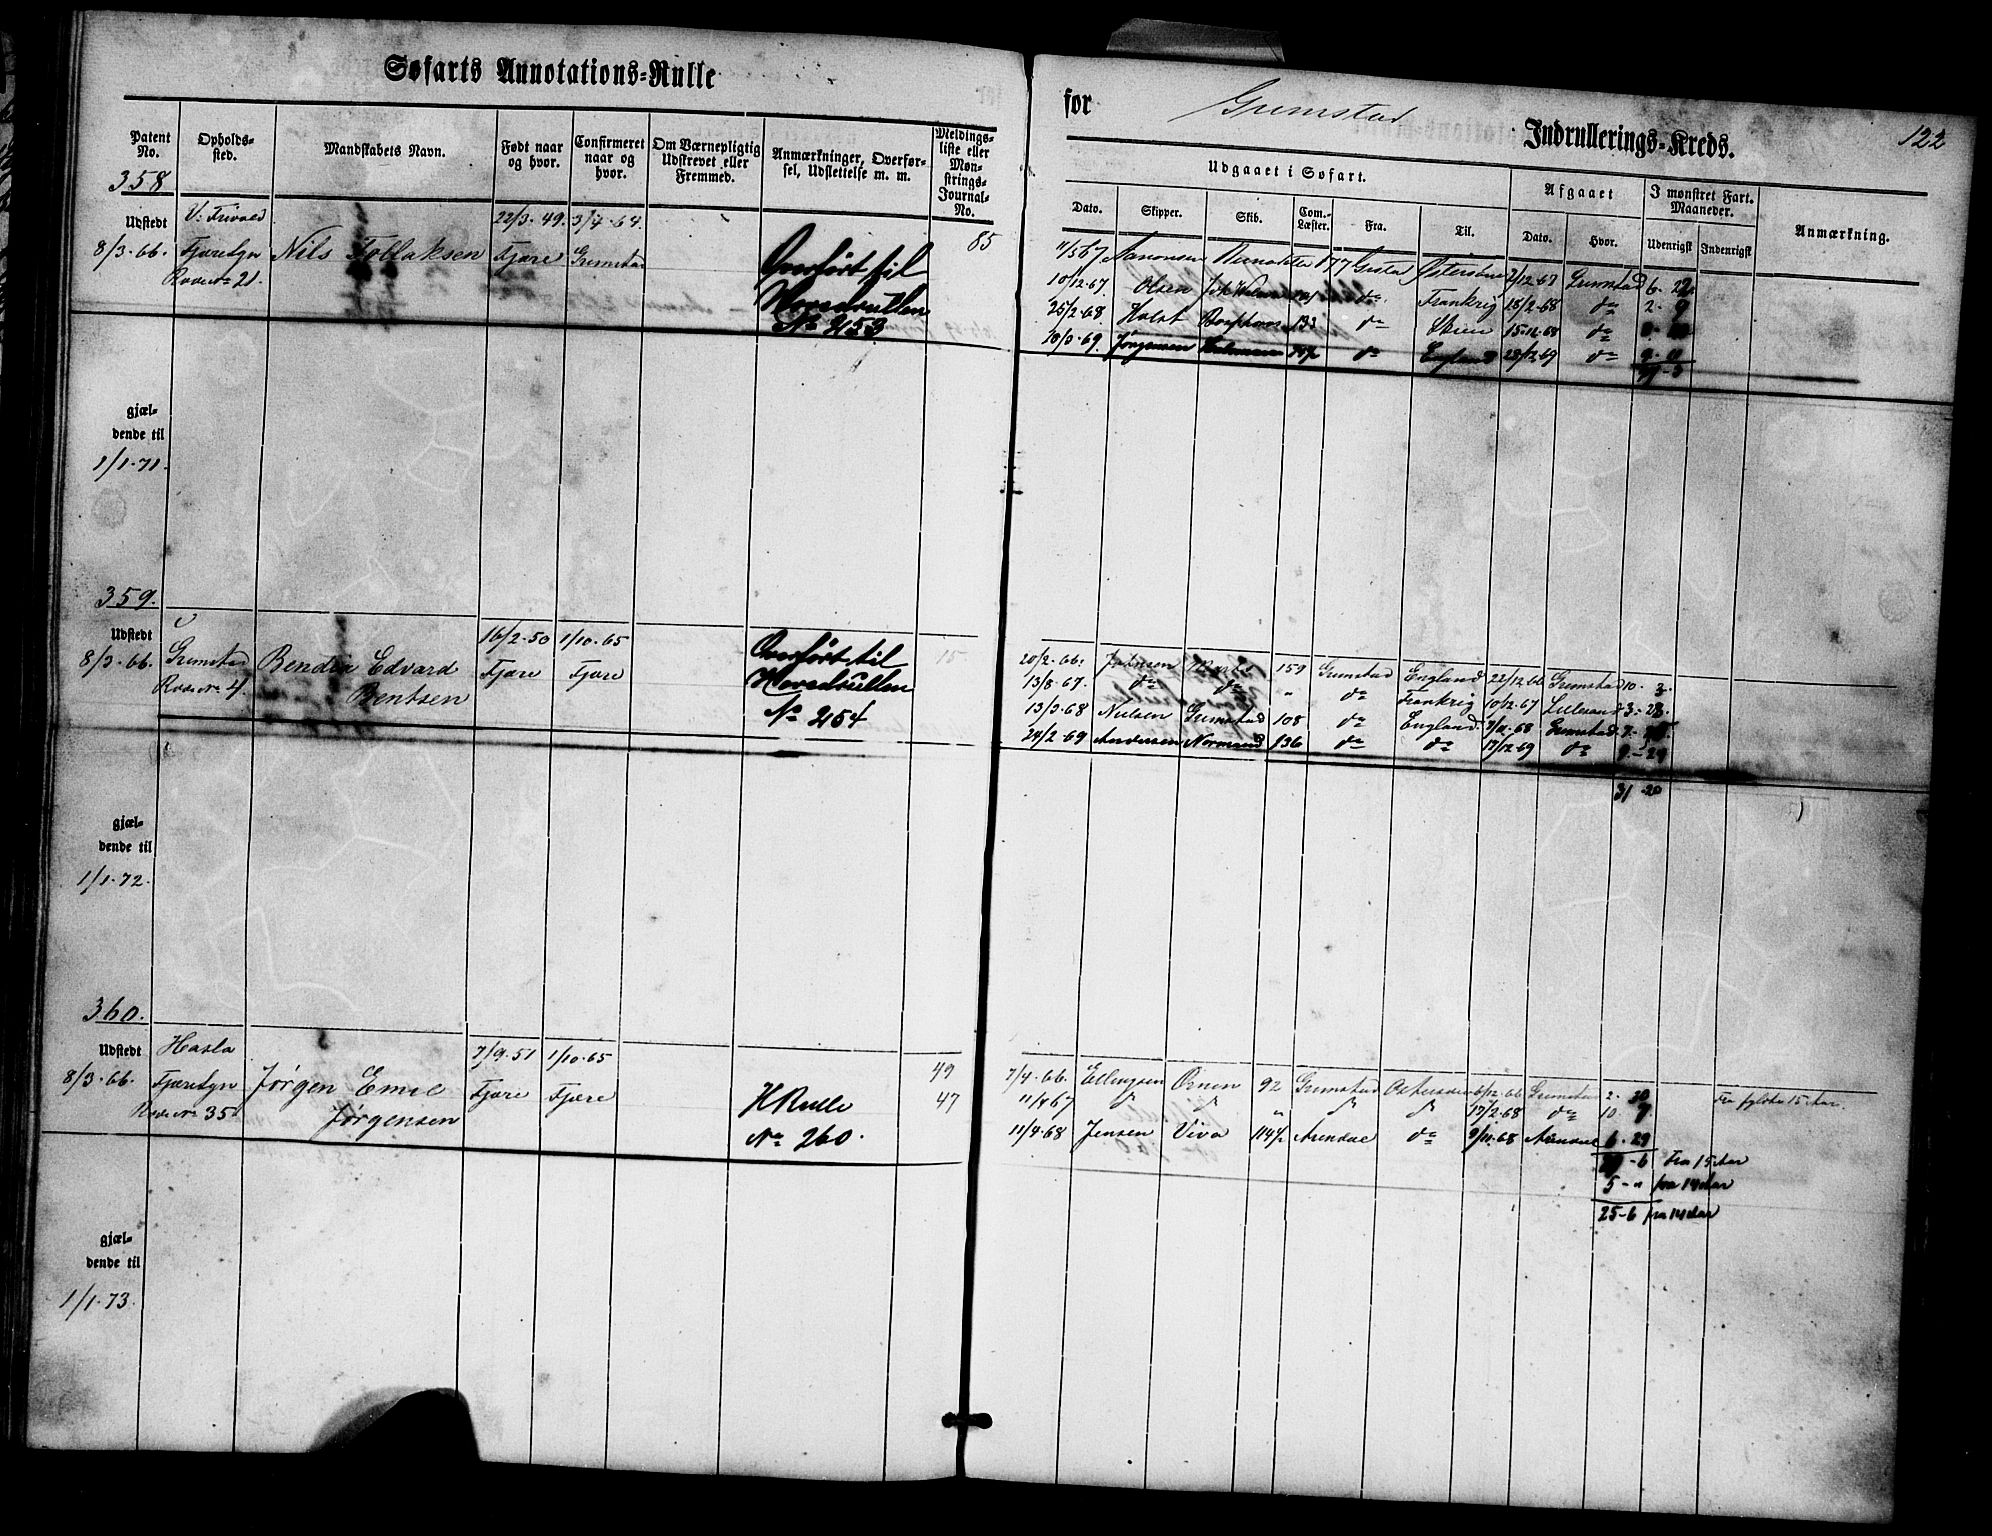 Søfarts Annotations-Rulle
for Grimstad Indrullerings-Kreds.
122
Patent No. Opholds-sted. Mandskabets Navn. Født naar og hvor. Confirmeret naar og hvor. Om Værnepligtig Udskrevet eller Fremmed. Anmærkninger, Overførsel, Udslettelse m. m. Meldingsliste eller Mønstrings-Journal-No.
Udgaaet i Søfart. Afgaaet I mønstret Fart. Maaneder. Anmærkning.
Dato. Skipper. Skib. Com.-Læster. Fra. Til. Dato. Hvor. Udenrigsk Indenrigsk
358
Udstedt 22/3.49. 3/7.64. 85
8/3.66. Fjæresyn Nils Tollaksen Fjære Grimstad Overført til
Rode No 21. Hovedrullen
No 253
11/3 67 Aanonsen 177 2/12.67 Grimstad 6. 22
10/12.67. Olsen do Frankrig 18/2.68 do 2. 9
25/2.68. Holst do 15.12.68 do
10/3.69. Jørgensen do England 23/12.69 do 9. 11
gjæl-
dende til
1/1.71.
359.
Udstedt 16/2.50 1/10.65 Overført til 15
8/3.66. Grimstad Bendix Edvard Fjære Fjære Hovedrullen
Rode No 4. Bentsen No 254
20/2.66. 159 Grimstad England 22/12.66 Grimstad 10. 3
13/8.67. do do " do Frankrig 10/12.67 Lillesand 3. 23
13/3.68 Nielsen Grimstad 108 do England Grimstad 7.
24/2.69 Andersen Normand 136 do do 17/12.69 do 9. 29
31. 20
gjæl-
dende til
1/1.72.
360.
Udstedt Hasla 7/9.51 1/10.65 49
8/3.66. Fjæresyn Jørgen Emil Fjære Fjære H Rulle 47
Rode No 35 Jørgensen No 260.
7/4.66. Ellingsen Ørnen 92 Grimstad Østersøen 6/12.66 Grimstad 2. 20 Fra fyldte 15 Aar.
11/4 67 do do " do do 17/2.68 do 10. 7
11/4.68 Jensen Viva 114½ Arendal do 9/11.68 Arendal 6. 29
-6 Fra 15 Aar
5-" fra 14 Aar
25-6 fra 14 Aar
gjæl-
dende til
1/1.73.